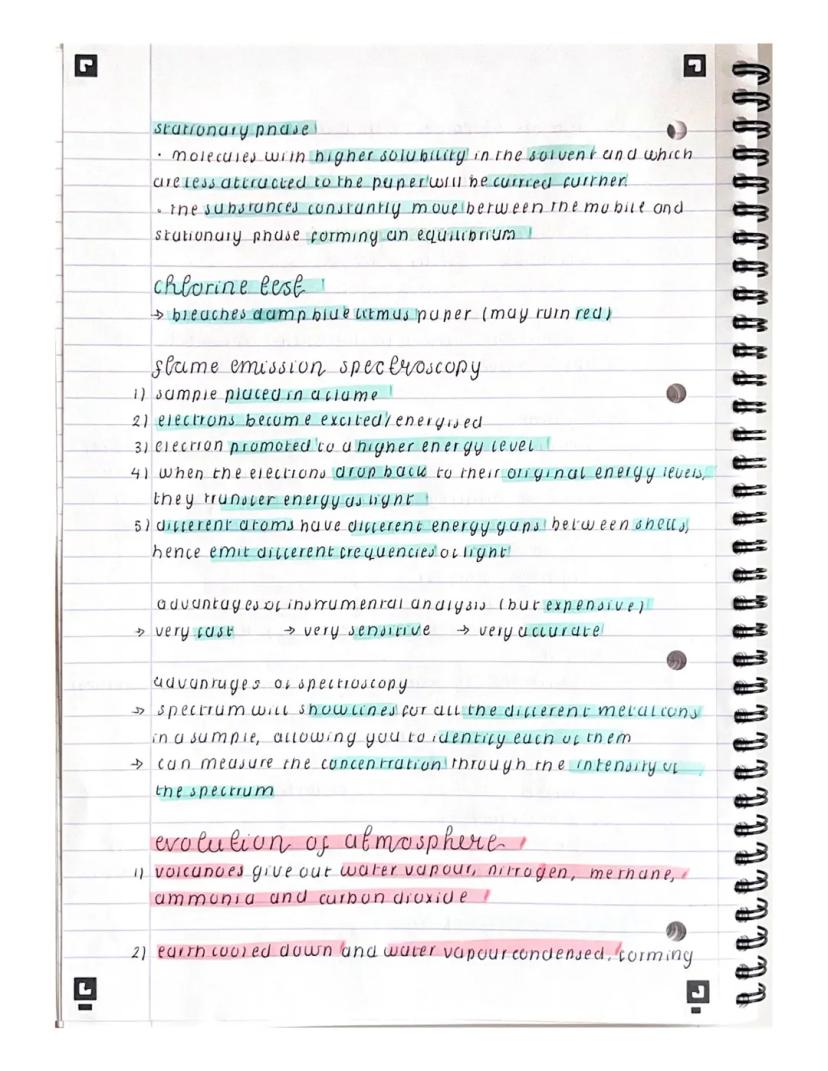 stationary phase
· molecules with higher solubility in the solvent and which
are less attracted to the paper will be carried further.
· the substances constantly move between the mobile and
stationary phase forming an equilibrium
chlorine test
→ breaches damp blue litmus paper (may ruin red)
flame emission spectroscopy
1) sample placed in a flame
2) electrons become excited/energised
3) electron promoted to a higher energy level
4) when the electrons drop back to their original energy levels,
they transfer energy as light
5) different atoms have different energy gaps between shells,
hence emit different frequencies of light
advantages of instrumental analysis (but expensive)
→ very fast → very sensitive → very accurate
advantages of spectroscopy
→ spectrum will show lines for all the different metal ions
in a sample, allowing you to identify each of them
→ can measure the concentration through the intensity of
the spectrum
evolution of atmosphere
1) volcanoes give out water vapour, nitrogen, methane,
ammonia and carbon dioxide
2) earth cooled down and water vapour condensed, forming